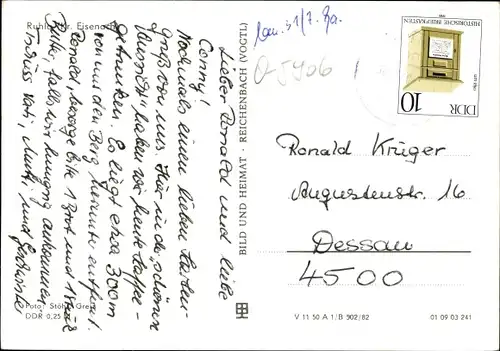 Ruhla, Kr. Eisenach
Lieber Ronald und liebe
Conny!
Nochmals einen lieben Karten-
gruß von uns. Hier in der "schönen
Aussicht" haben wir heute Kaffee
getrunken. Es liegt etwa 300m
von uns den Berg hinunter entfernt.
Ronald, besorge bitte 1 Brot und 1 Stück
Butter, falls wir hungrig ankommen.
Tschüss Vati, Mutti und
Foto: Stöhr, Greiz
DDR 0,25
BILD UND HEIMAT · REICHENBACH (VOGTL)
O 5406
HISTORISCHE BRIEFKÄSTEN
DDR
10
Ronald Krüger
Augustenstr. 16
Dessau
4500
V 11 50 A 1/B 902/82
01 09 03 241